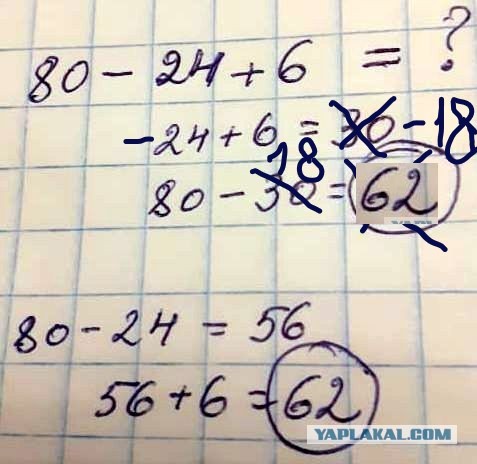 80 - 24 + 6 = ?
-24 + 6 = 30 -18
18
80 - 30 = 62
80 - 24 = 56
56 + 6 = 62
YAPLAKAL.COM